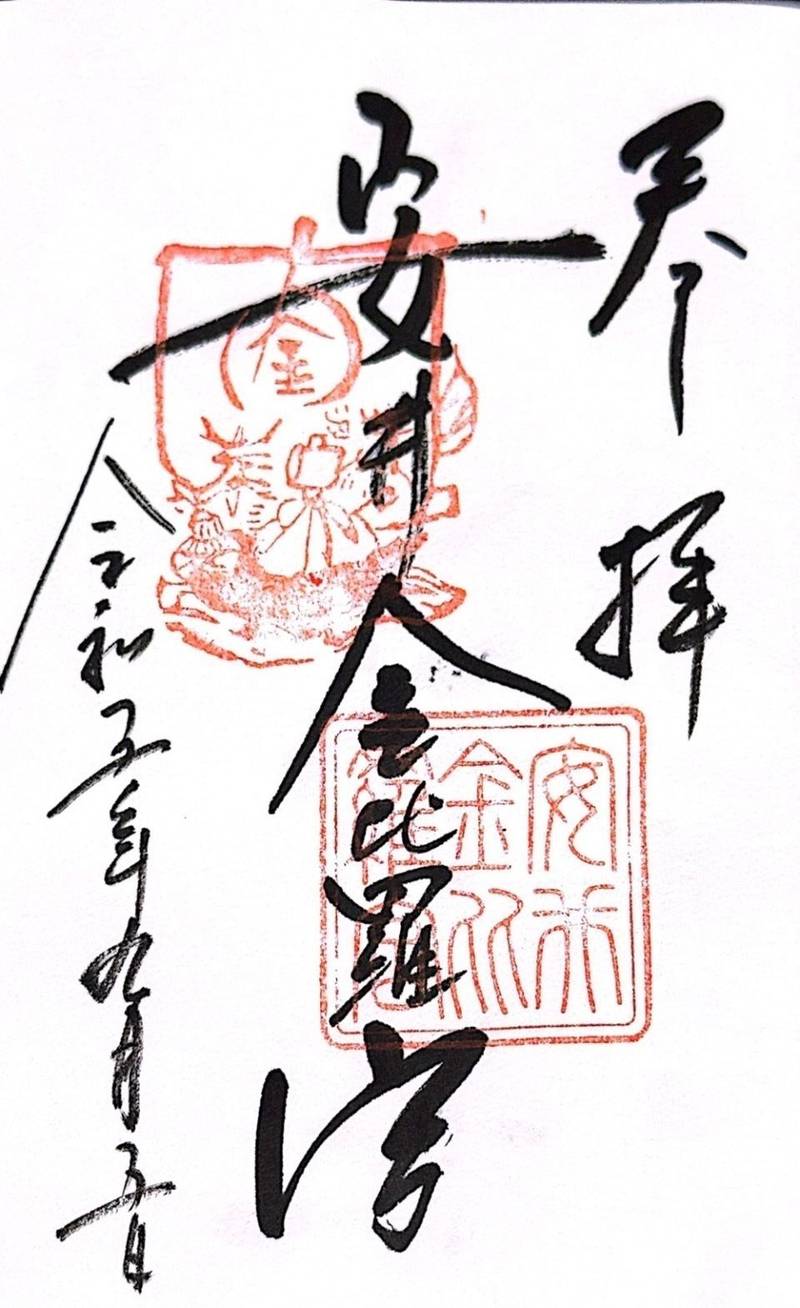 奉拝
安井金比羅宮
令和五年九月五日
金
奉
安井
金比
羅宮